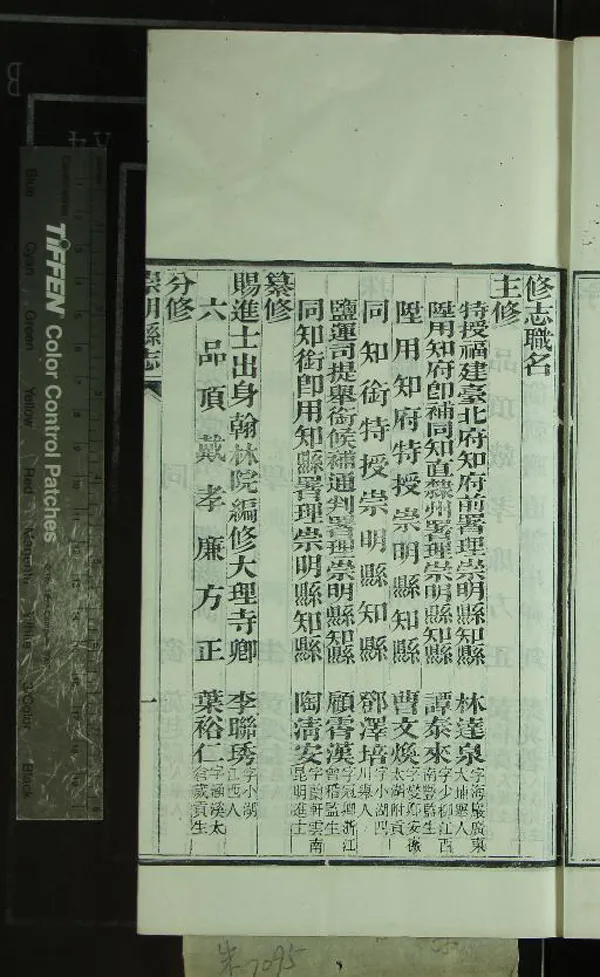 修志職名
主修
特授福建臺北府知府前署理崇明縣知縣 林達泉 字海巖廣東大埔舉人
陞用知府卽補同知直隸州署理崇明縣知縣 譚泰來 字少柳江西南豐監生
陞用知府特授崇明縣知縣 曹文煥 字燮卿安徽太湖附貢
同知銜特授崇明縣知縣 鄧澤培 字小湖四川舉人
鹽運司提舉銜候補通判署理崇明縣知縣 顧雲漢 字冠卿浙江會稽監生
同知銜卽用知縣署理崇明縣知縣 陶淸安 字蘭軒雲南昆明進士
纂修
賜進士出身翰林院編修大理寺卿 李聯琇 字小湖江西人
六品頂戴孝廉方正 葉裕仁 字涵溪太倉歲貢生
分修
崇明縣志
一
TIFFEN Color Control Patches
Blue
Cyan
Green
Yellow
Red
Magenta
White
3/Color
Black
朱7095